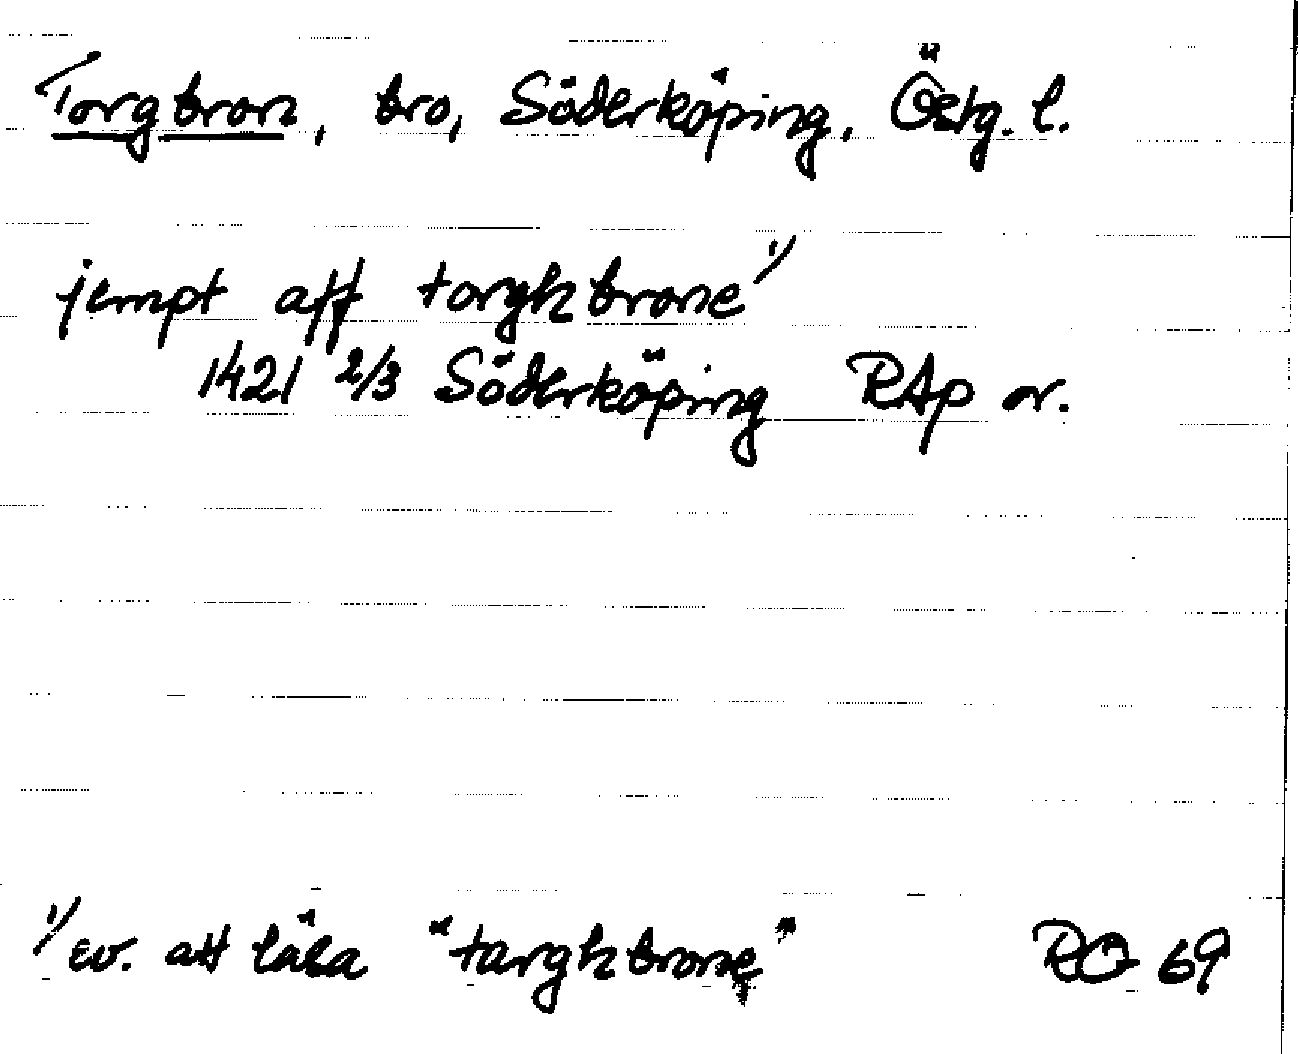 Torgbron, bro, Söderköping, Östg. l.
jempt aff torghbrone 1/
1421 2/3 Söderköping RAp or.
1/ ev. att läsa "targhbrone" RO 69